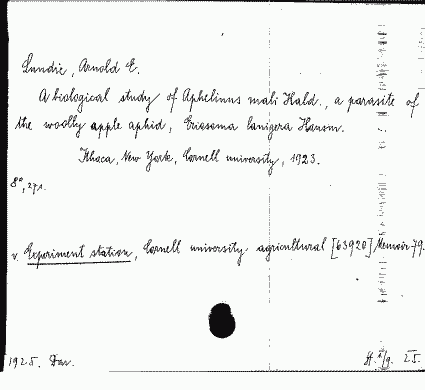 Lundie, Arnold E.
A biological study of Aphelinus mali Hald., a parasite of
the woolly apple aphid, Eriosoma lanigera Hausm.
Ithaca, New York, Cornell university, 1923.
8°, 27 s.
v. Experiment station, Cornell university agricultural [63920] Memoir 79.
1925. Dav.
H. 25.